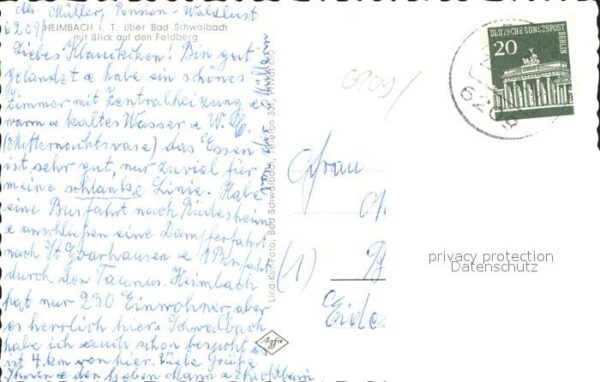 Abs. Müller, Pension "Waldlust
6209/HEIMBACH i. T. über Bad Schwalbach
mit Blick auf den Feldberg
Liebes Klaunikchen! Bin gut
gelandet & habe ein schönes
Zimmer mit Zentralheizung
warm & kaltes Wasser & W.C.
das Essen
ist sehr gut, nur zuviel für
meine schlanke Linie. Habe
eine Busfahrt nach Rüdesheim
& anschließen eine Dampferfahrt
nach St. Goarhausen & Busfahrt
durch den Taunus. Heimbach
hat nur 230 Einwohner, aber
es herrlich hier. Schwalbach
habe ich auch schon besucht es
ist 4 km von hier. Viele Grüße
Ihnen & dem lieben Mann &
von der Müllern
Lind-Kunst-Foto, Bad Schwalbach, Telefon
6209/
Frau
(1)
DEUTSCHE BUNDESPOST
BERLIN
20
620
privacy protection
Datenschutz
Agfa